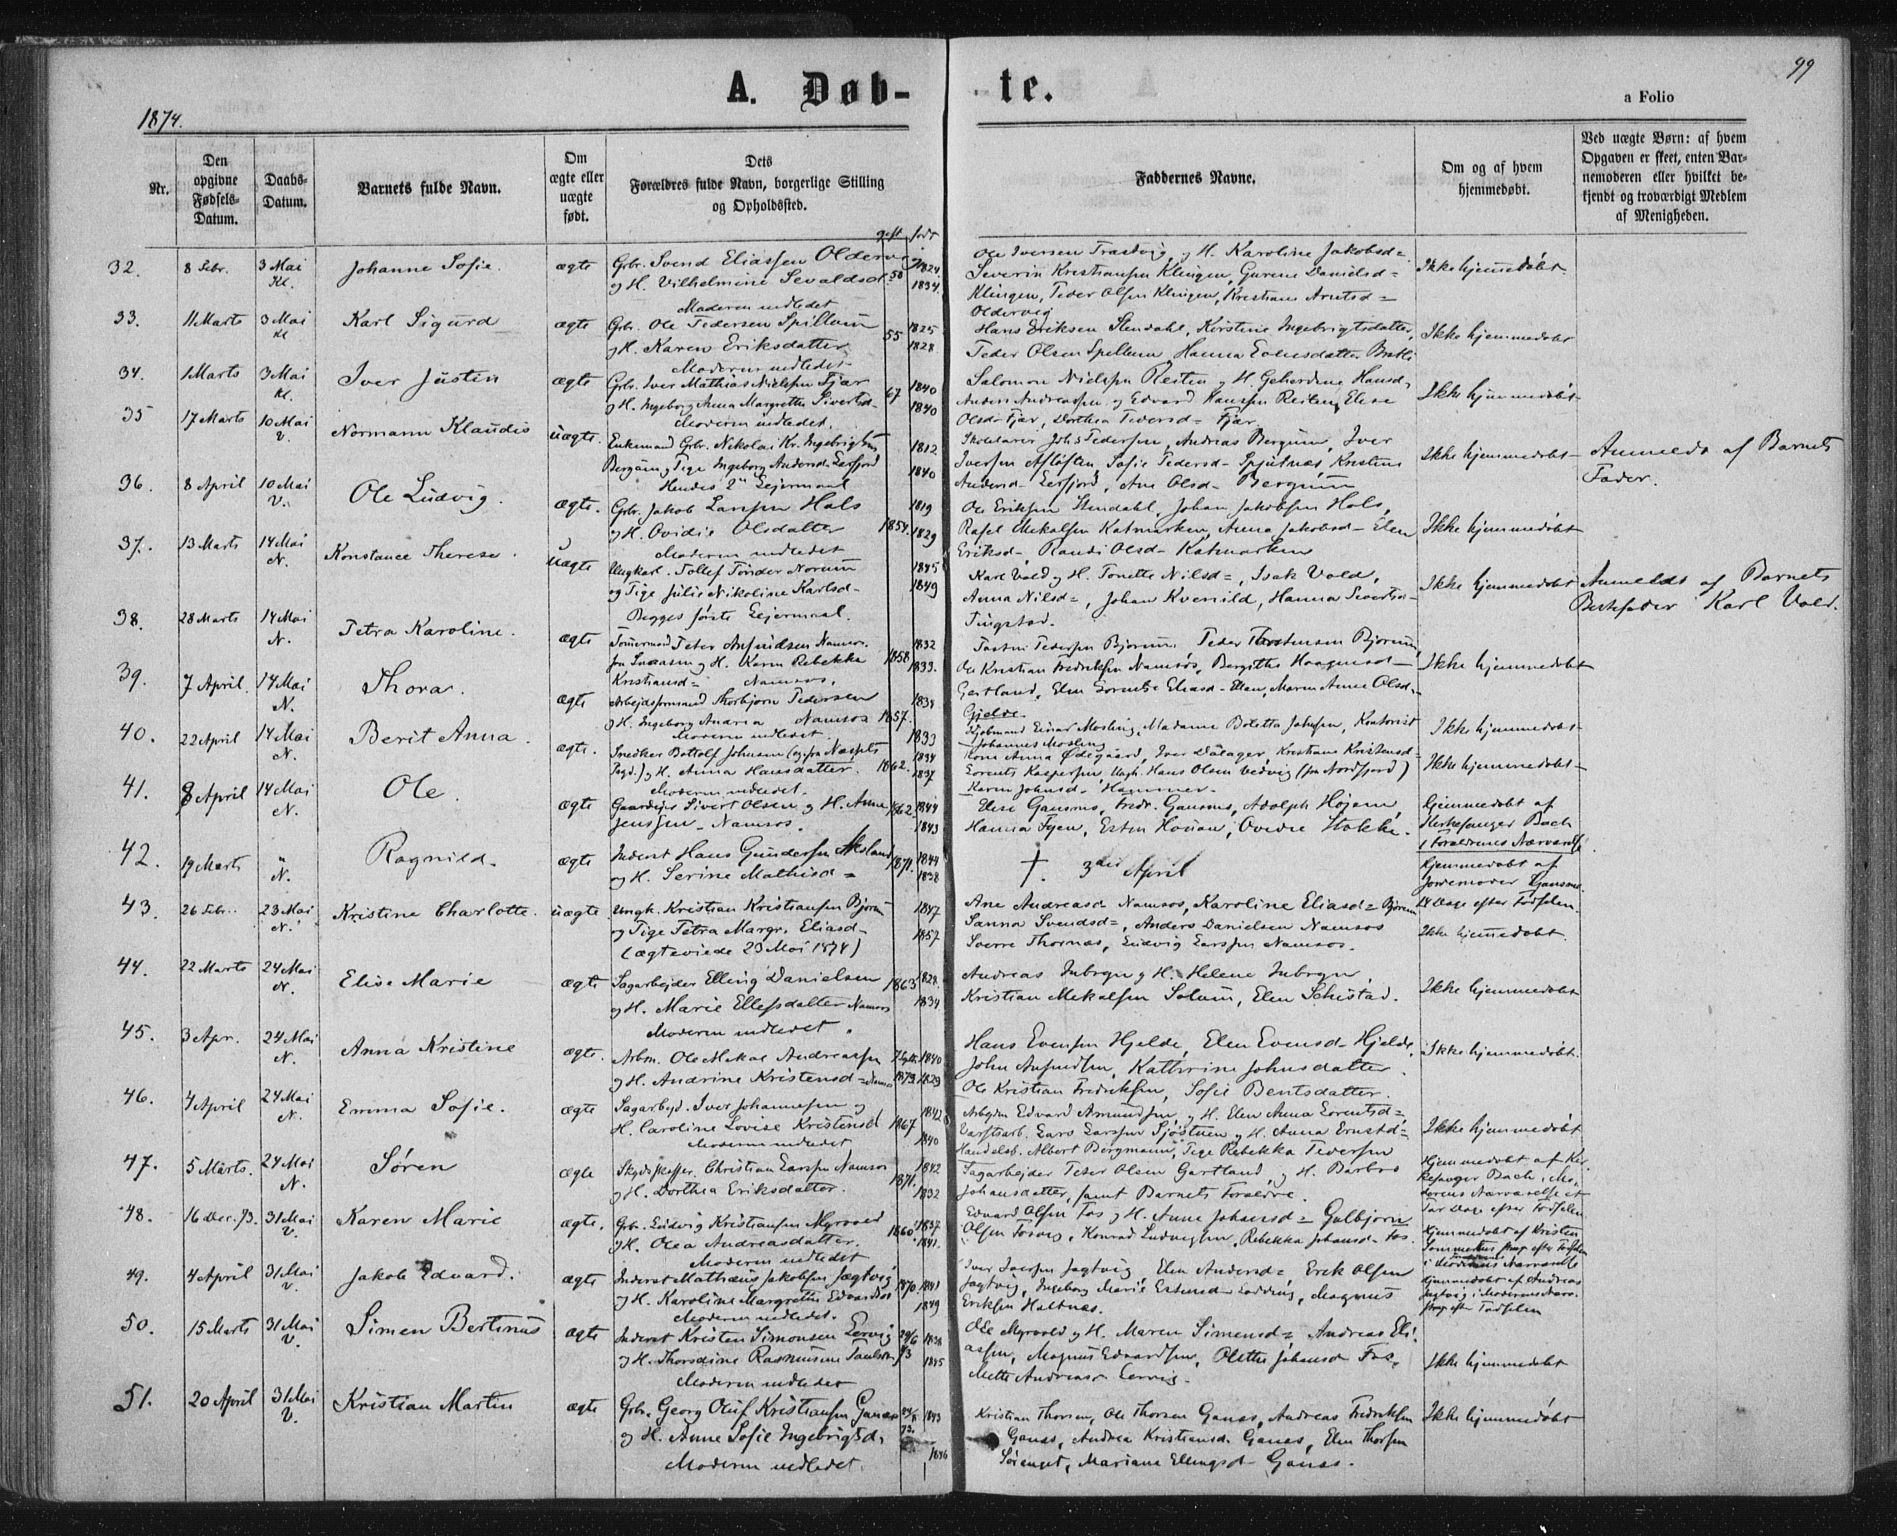 99
A. Døb-te.
a Folio
1874.
Nr.
Den opgivne Fødsels-Datum.
Daabs-Datum.
Barnets fulde Navn.
Om ægte eller uægte født.
Dets Forældres fulde Navn, borgerlige Stilling og Opholdssted.
gift født
Faddernes Navne.
Om og af hvem hjemmedøbt.
Ved uægte Børn: af hvem Opgaven er skeet, enten Barnemoderen eller hvilket bekjendt og troværdigt Medlem af Menigheden.
32. 8 Febr. 3 Mai Kl. Johanne Sofie. ægte Grbr. Svend Eliassen 1824. Ole Iversen H. Karoline Jakobsd= Ikke hjemmedøbt
og H. Vilhelmine Sevaldsd 50 1834. Severin Kristiansen Klingen, Gurene Danielsd=
Moderen indledet Klingen, Peder Olsen Klingen, Kristiane Arntsd=
Oldervig
33. 11 Marts 3 Mai Kl Karl Sigurd ægte Grbr. Ole Pedersen Spillum 55 1825 Hans Eriksen Stendahl, Kirstine Ingebrigtsdatter, Ikke hjemmedøbt
og H. Karen Eriksdatter 1828. Peder Olsen Spillum, Hanna
Moderen indledet
34. 1 Marts 3 Mai Kl. Iver Justin ægte Grbr. Iver Mathias Nielsen Fjær 67 1840 Salomon Nielsen H. Hansd. Ikke hjemmedøbt
og H. Ingeborg Anna Margrethe Sivertsd= 1840 Anders Andreassen og Edvard Hansen Elise
Moderen indledet. Olsd= Fjær, Dorthea Pedersd= Fjær
35 17 Marts 10 Mai V. Normann Klaudis uægte. Enkemand Grbr. Nikolai Kr. Ingebrigtsen 1812 Skolelærer Johs Pedersen, Andreas Bergum, Iver Ikke hjemmedøbt Anmeldt af Barnets
Bergum og Pige Ingeborg Andersd= 1840 Iversen Sofie Pedersd= Spjutnes, Kristine Fader.
Hendes 2det Leiermaal Andersd= Ane Olsd= Bergum
36. 8 April 10 Mai V. Ole Ludvig. ægte. Grbr. Jakob Larssen Hals 1854. 1819 Ole Eriksen Stendahl, Johan Jakobsen Hals, Ikke hjemmedøbt
og H. Ovidie Olsdatter 1829 Mekalsen Katmarken, Anna Jakobsd= Elen
Moderen indledet Eriksd= Randi Olsd= Katmarken
37. 13 Marts 14 Mai N. Konstance Therese. uægte Ungkarl. Tollef Tønder Norum 1845 Karl Vold og H. Tonette Nilsd=, Isak Vold, Ikke hjemmedøbt Anmeldt af Barnets
og Pige Julie Nikoline Karlsd= 1849 Anna Nilsd=, Johan Kvenild, Hanna Sivertsd= Bestefader Karl Vold.
Begges første Leiermaal. Tingstad.
38. 28 Marts 14 Mai N. Petra Karoline. ægte Tømermand Peter Namsos. 1858. 1832 Pedersen Bjørum Peder Thorstensen Bjørum, Ikke hjemmedøbt
fra Snaasen og H. Karen Rebekka 1833. Ole Kristian Fredriksen Namsos, Bergitte
Kristiansd= Namsos. Gartland, Elen Lorentse Eliasd= Maren Anne Olsd=
Gjelde.
39. 7 April. 14 Mai N. Thora. ægte Arbejdsformand Thorbjørn Pedersen 1857. 1834 Kjøbmand Einar Mosling, Madame Boletta Kontorist Ikke hjemmedøbt
og H. Ingeborg Andrea Namsos 1833 Johannes Mosling
Moderen indledet.
40. 22 April 14 Mai N. Berit Anna. ægte. Snedker Johnsen 1862. 1834 Kone Anna Ødegaard, Iver Dalager, Kristiane Kristensd= Ikke hjemmedøbt
og H. Anna Hansdatter. 1837 Lorents Kaspersen, Ungk. Hans Olsen (fra Nordfjord)
Moderen indledet. Karen Johnsd= Hammer.
41. 8 April 14 Mai N. Ole. ægte Gaardejer Sivert Olsen og H. Anne 1862. 1844 Elise Gansmo, Fredr. Gansmo, Adolph Højem, Hjemmedøbt af
Jenssen Namsos. 1843 Hanna Fyen, Esten Ovidie Stokke. Kirkesanger Bach
i Forældrenes Nærværelse
42. 19 Marts " N. Ragnild. ægte Inderst Hans Gundersen 1871. 1844 † 3die April Hjemmedøbt af
og H. Serine Mathisd= 1838 Jordemoder Hansmo
14 Dage efter Fødselen.
43. 26 Febr. 23 Mai N. Kristine Charlotte. uægte Ungk. Kristian Kristiansen Bjørum 1847 Ane Andreasd Namsos, Karoline Eliasd= Bjørum Ikke hjemmedøbt.
og Pige Petra Margr. Eliasd= 1857 Sanna Svendsd=, Anders Danielsen Namsos
(ægteviede 23 Mai 1874) Sverre Thornæs, Ludvig Larssen Namsos.
44. 22 Marts 24 Mai N. Elise Marie ægte Sagarbejder Elling Danielsen 1863 1828. Andreas Inbryn og H. Helene Inbryn, Ikke hjemmedøbt
og H. Marie Ellefsdatter Namsos 1834 Kristian Mekalsen Solum, Elen Schistad.
Moderen indledet.
45. 3 Apr. 24 Mai N. Anna Kristine ægte. Arbm. Ole Mekal Andreassen 1840 Hans Evensen Hjelde, Elen Evensd Hjelde, Ikke hjemmedøbt.
og H. Andrine Kristensd= 1873 1829 John Kathrine Johnsdatter.
Ole Kristian Fredriksen, Sofie Bentsdatter.
46. 4 April 24 Mai N. Emma Sofie. ægte Sagarbejd. Iver Johannesen og 1867 1842 Edvard Amundsen, og H. Elen Anna Lorentsd= Ikke hjemmedøbt
H. Caroline Lovise Kristensd 1840 Værftsarb. Lars Larssen og H. Anna Ernstd=
Moderen indledet Handelsb. Albert Bergmann, Pige Rebekka Peversen
47. 5 Marts. 24 Mai N. Søren ægte Skydsskaffer. Christian Larssen Namsos 1871. 1842 Sagarbejder Peter Olsen Gartland, og H. Barbro Hjemmedøbt af Kir-
og H. Dorthea Eriksdatter. 1832 Johansdatter, samt Barnets Forældre. kesanger Bach i Mo-
derens Nærværelse et
Par Dage efter Fødselen
48. 16 Dec. 73. 31 Mai V. Karen Marie ægte. Grbr. Ludvig Kristiansen Myrvold 1860. 1837 Edvard Olsen Fos og H. Anne Johansd= Gulbjørn Hjemmedøbt af Kristen
og H. Olea Andreasdatter. 1841. Olsen Fosvig, Konrad Ludvigsen, Rebekka Johansd= Fos. strax efter Fødselen
Moderen indledet i Moderens Nærværelse
49. 4 April 31 Mai V. Jakob Edvard. ægte Inderst Mathæus Jakobsen Jægtvig 1870. 1841 Iver Iversen Jægtvig Elen Andersd= Erik Olsen Hjemmedøbt af Andreas
og H. Karoline Margrethe Edvardsd= 1849 Jægtvig, Ingeborg Marie Magnus Jægtvig i Moderens Nærv.
Moderen indledet. Eriksen Haltnæs. strax efter Fødselen
50. 15 Marts 31 Mai V. Simen Bertinus ægte Inderst Kristen Simonsen Lervig 29/6 73 1838 Ole Myrvold og H. Maren Simensd= Andreas Eli- Ikke hjemmedøbt
og H. Thorsdine Rasmusine 1845 assen, Magnus Edvardsen, Olette Johansd Fos,
Moderen indledet Mette Andreasd Lervig.
51. 20 April 31 Mai V. Kristian Martin ægte Grbr. Georg Oluf Kristiansen Ganæs 73. 1843 Kristian Thorsen, Ole Thorsen Ganæs, Andreas Fredriksen Ikke hjemmedøbt
og H. Anne Sofie Ingebrigtsd= 1846 Ganæs, Andrea Kristiansd= Ganæs, Elen Thorsen
Moderen indledet. Sørenget, Mariane Ellingsd= Ganæs.